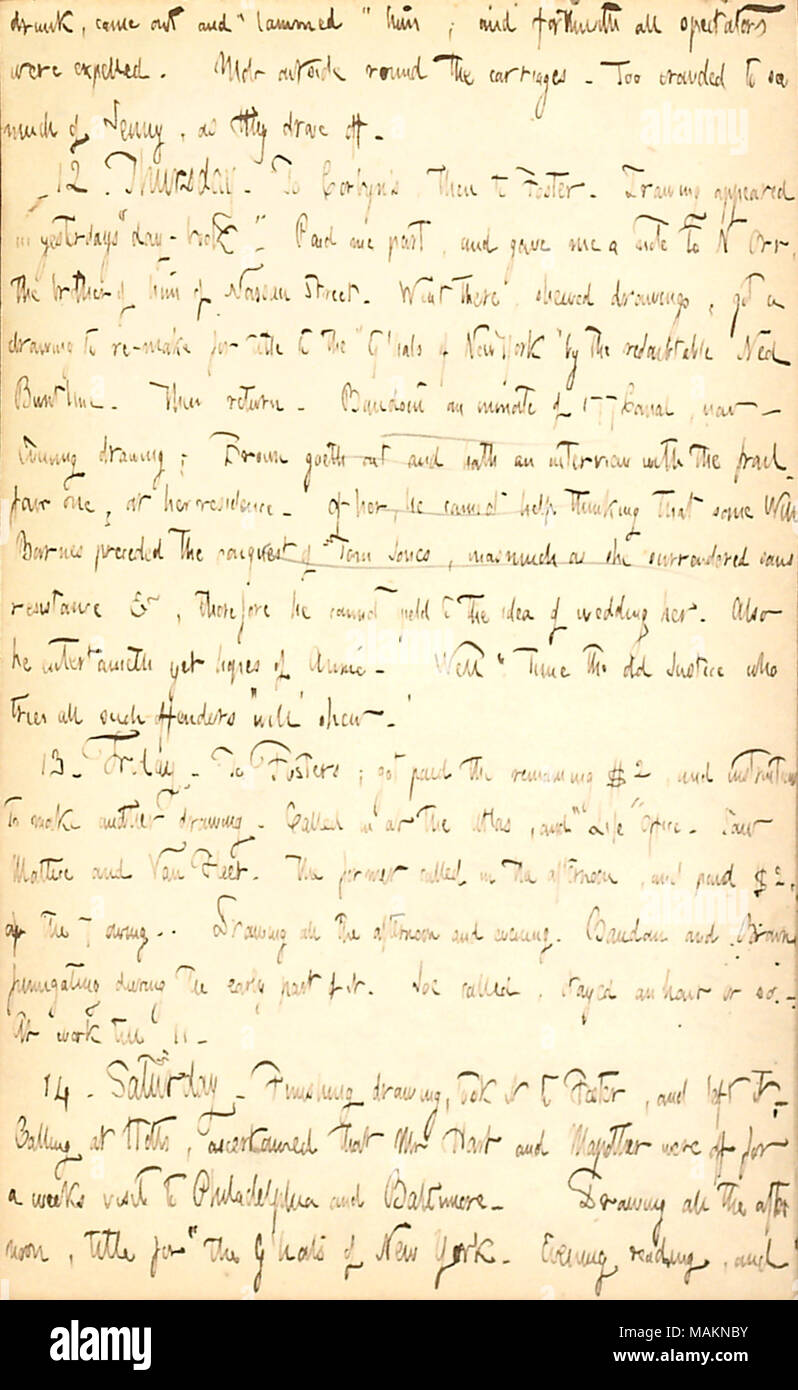 drunk, came out and "lammed" him; and forthwith all spectators
were expelled. Mob outside round the carriages. Too crowded to see
much of Jenny, as they drove off.
12. Thursday. To Corbyn's, then to Foster. Drawing appeared
in yesterdays "day-book". Paid me part, and gave me a note to N Orr,
the brother of him of Nassau Street. Went there, shewed drawings, got a
drawing to re-make for title to the "G'hals of New York" by the redoubtable Ned
Buntline. Then return. Baudoin an inmate of 177 Canal, now.
Evening drawing; Brown goeth out and hath an interview with the frail
fair one, at her residence. Of her, he cannot help thinking that some Will
Barnes preceded the conquest of "Tom Jones, inasmuch as she surrendered sans
resistance &c, therefore he cannot yield to the idea of wedding her. Also
he entertaineth yet hopes of Annie. Well "Time the old Justice who
tries all such offenders" will shew.
13. Friday. To Fosters; got paid the remaining $2, and instructions
to make another drawing. Called in at the Atlas, and "Life" Office. Saw
Mattice and Van Fleet. The former called in the afternoon, and paid $2,
of the 7 owing. Drawing all the afternoon and evening. Baudoin and Brown
fumigating during the early part of it. Joe called, stayed an hour or so.
At work till 11.
14. Saturday. Finishing drawing, took it to Foster, and left it.
Calling at Holts, ascertained that Mr Hart and Mapother were off for
a weeks visit to Philadelphia and Baltimore. Drawing all the after
noon, title for "the G'hals of New York. Evening reading, and
alamy
Image ID: MAKNBY
www.alamy.com